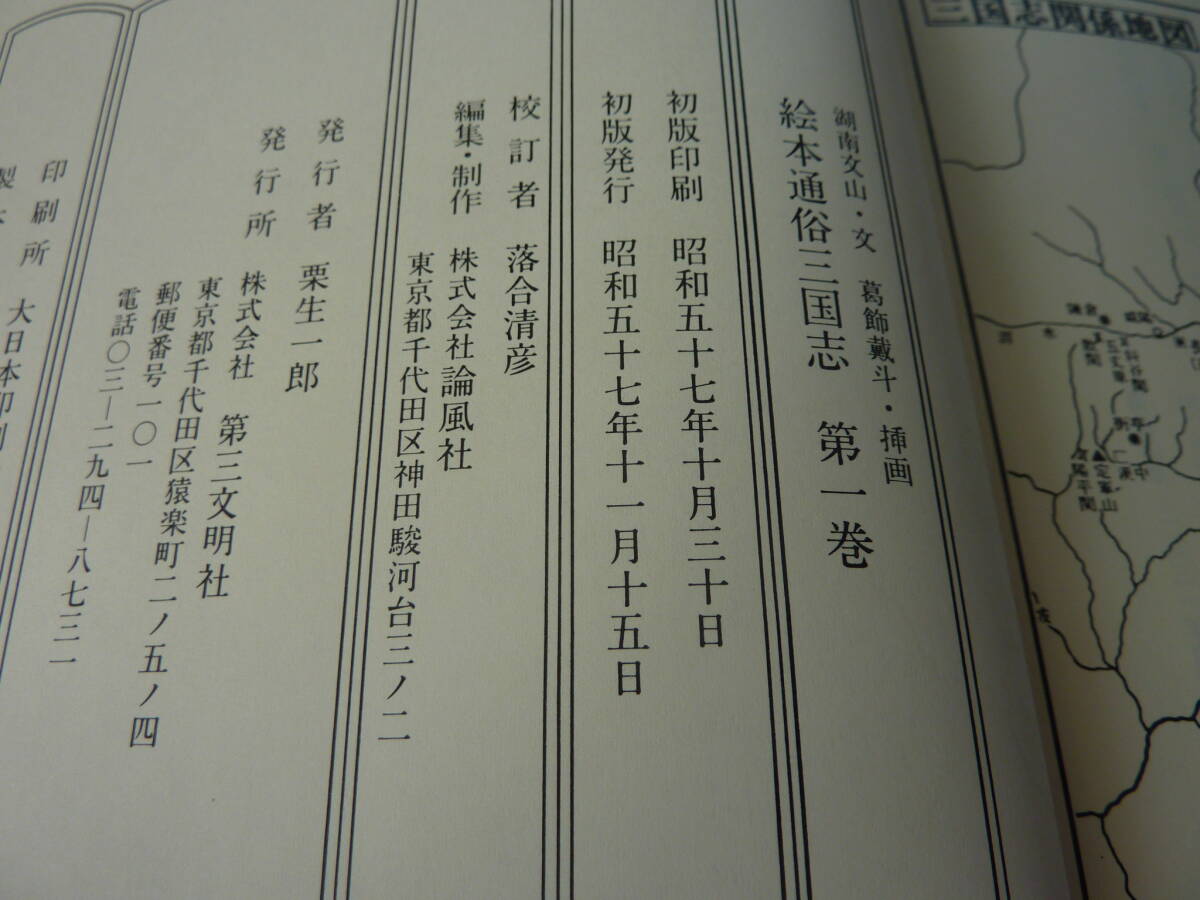 三国志関係地図
湖南文山・文 葛飾戴斗・挿画
絵本通俗三国志 第一巻
初版印刷 昭和五十七年十月三十日
初版発行 昭和五十七年十一月十五日
校訂者 落合清彦
編集・制作 株式会社論風社
東京都千代田区神田駿河台三ノ二
発行者 栗生一郎
発行所 株式会社 第三文明社
東京都千代田区猿楽町二ノ五ノ四
郵便番号一〇一
電話〇三―二九四―八七三一
印刷所 大日本印刷
製本
定軍山
陽平関